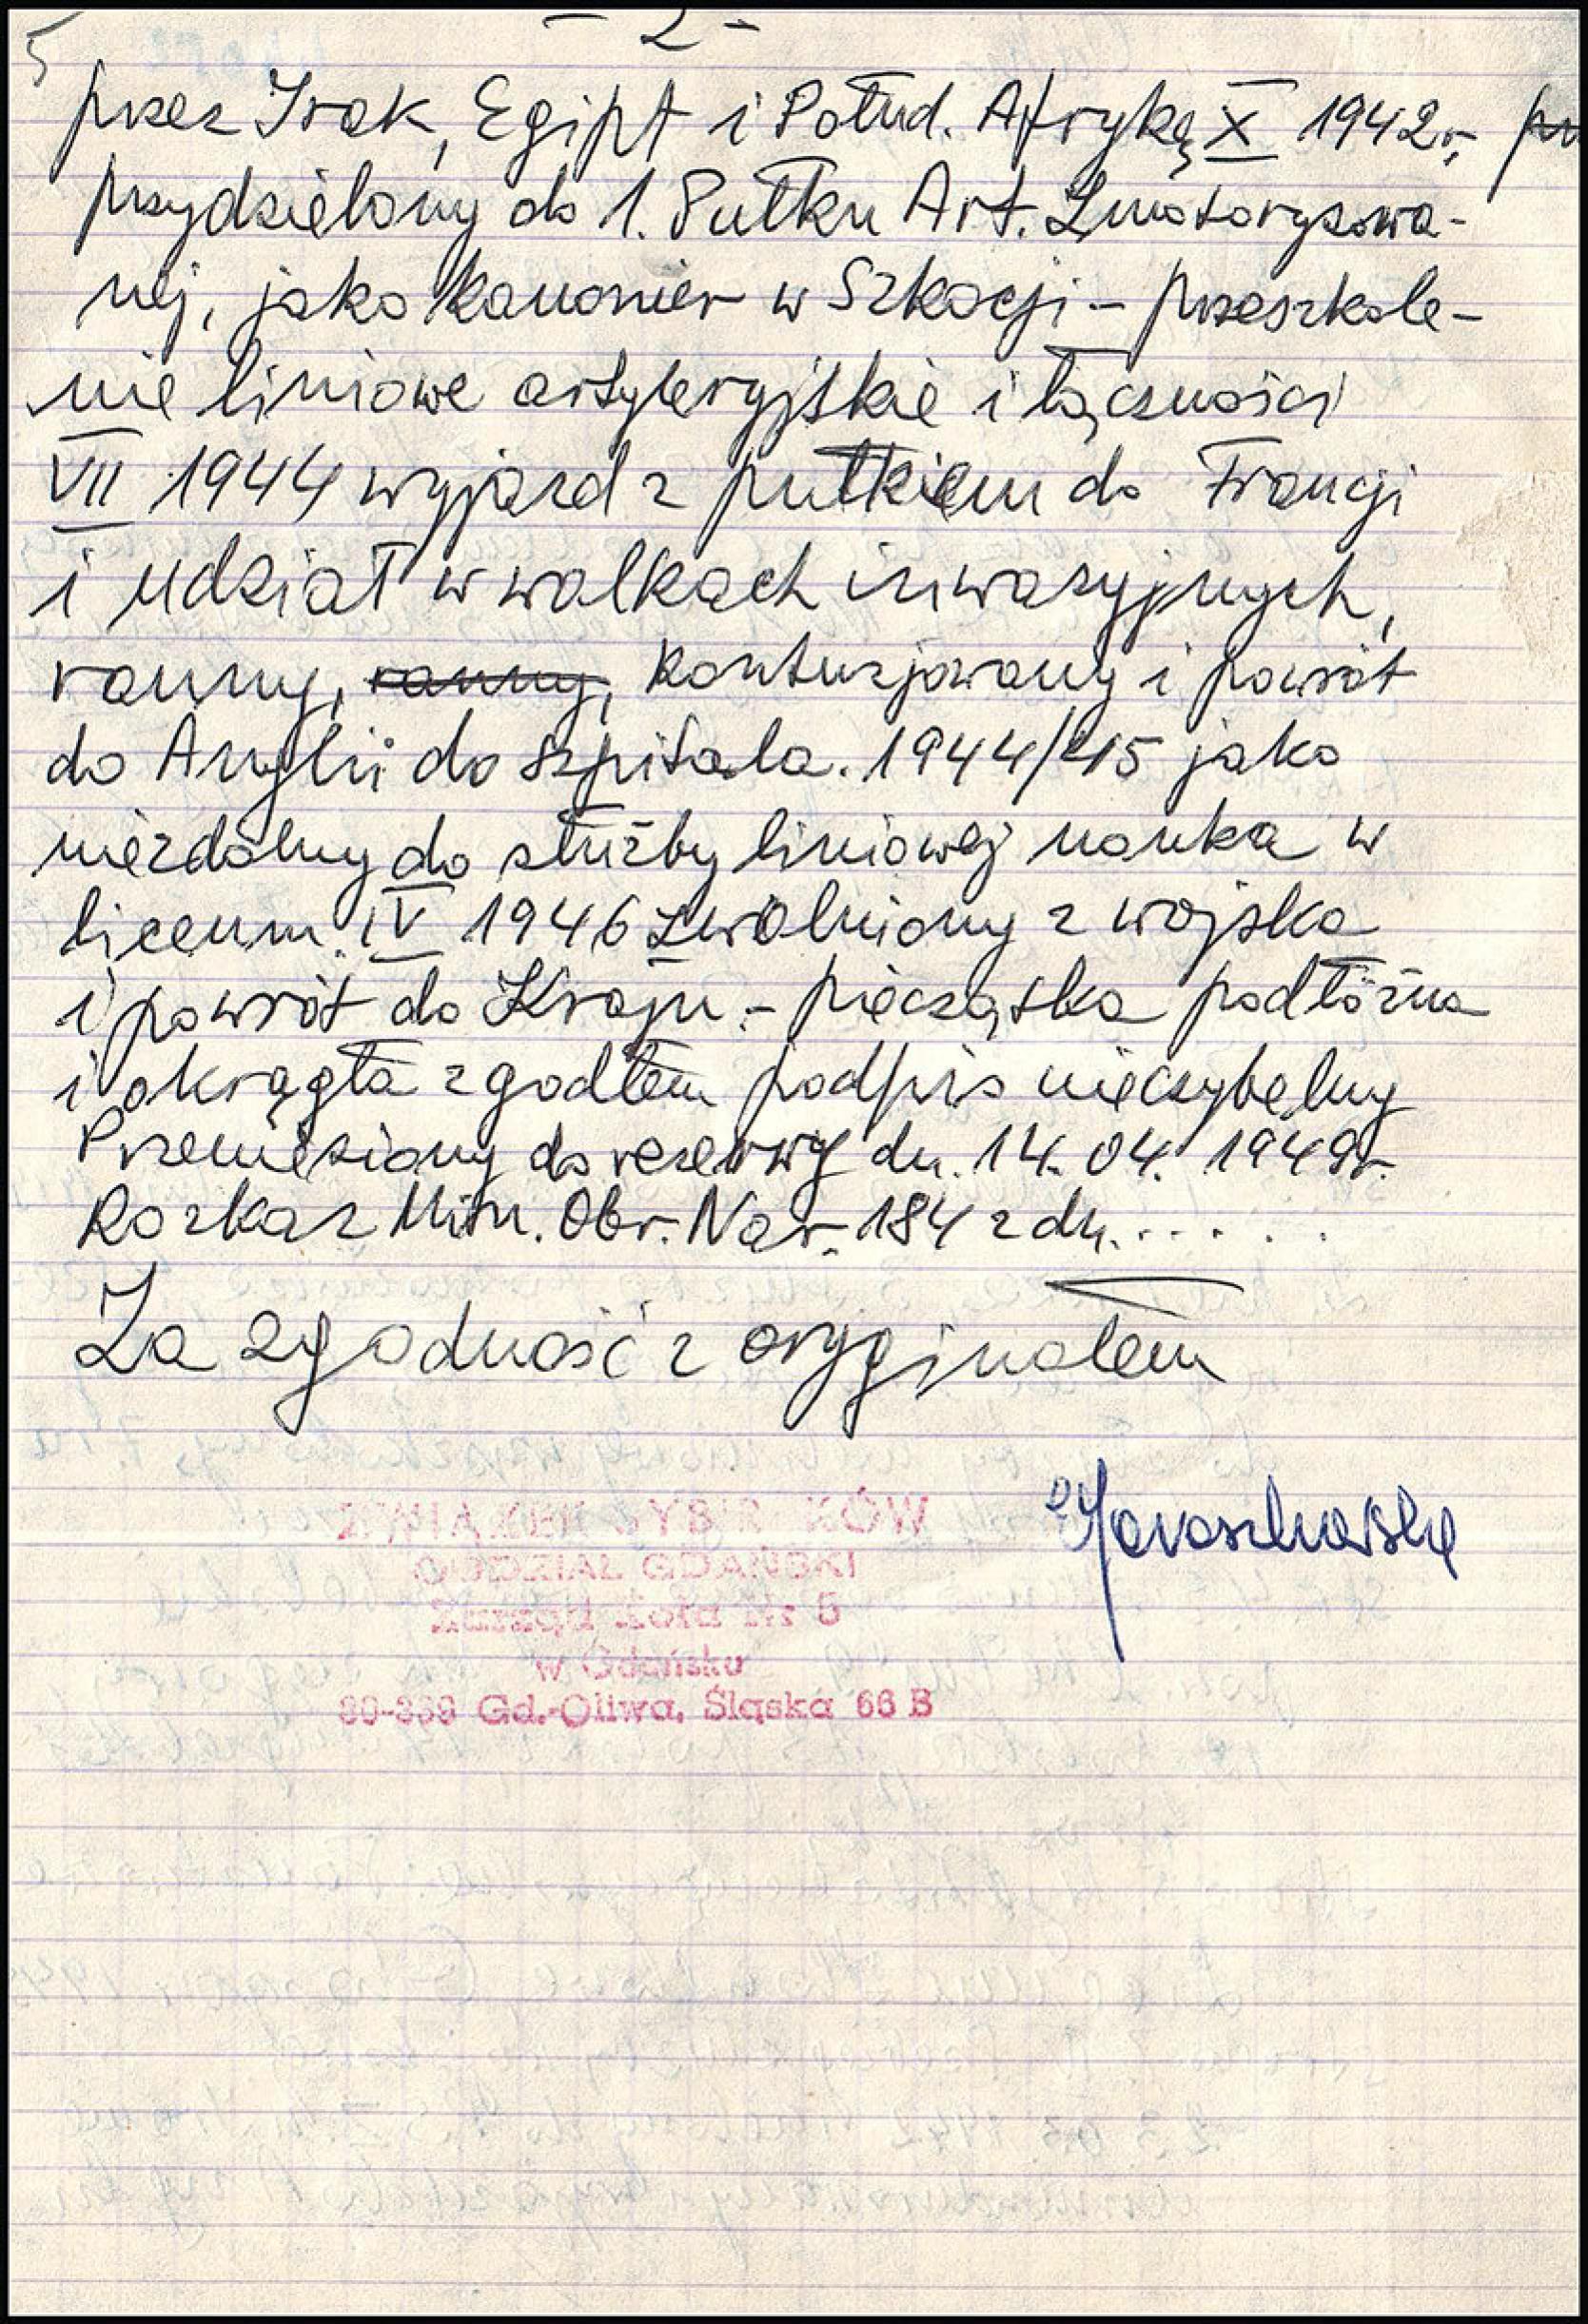 - 2 -
5
przez Irak, Egipt i Połud. Afrykę X 1942r, pr
przydzielony do 1. Pułku Art. Zmotoryzowa-
nej, jako kanonier w Szkocji - przeszkole-
nie liniowe artyleryjskie i łączności
VII 1944 wyjazd z pułkiem do Francji
i udział w walkach inwazyjnych,
ranny, ranny, kontuzjowany i powrót
do Anglii do szpitala. 1944/45 jako
niezdolny do służby liniowej nauka w
liceum. IV 1946 zwolniony z wojska
i powrót do Kraju - pieczątka podłóżna
i okrągła z godłem podpis nieczytelny
Przeniesiony do rezerwy dn. 14.04. 1949r.
Rozkaz Min. Obr. Nar. 184 z dn. . . . . .
Za zgodność z oryginałem
ZWIĄZEK SYBIRAKÓW
ODDZIAŁ GDAŃSKI
Zarząd Koła Nr 5
w Gdańsku
80-389 Gd.-Oliwa, Śląska 66 B